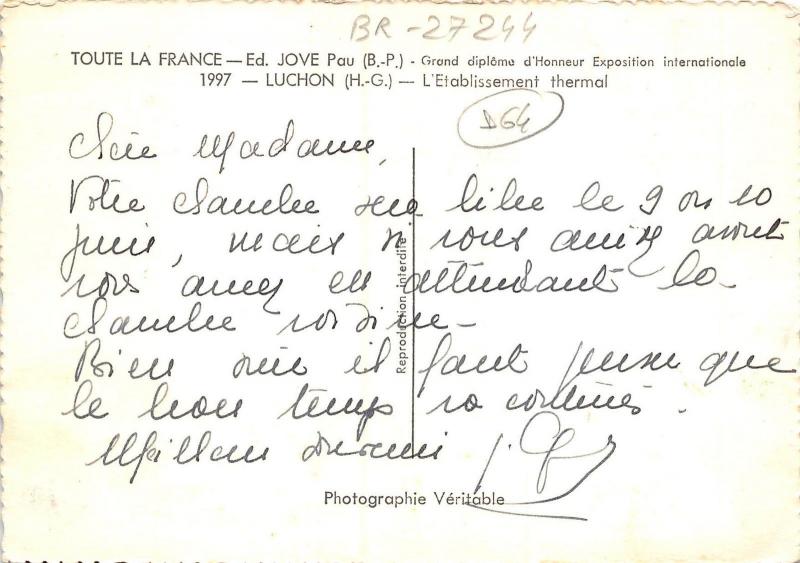 BR-27244
TOUTE LA FRANCE — Ed. JOVE Pau (B.-P.) - Grand diplôme d'Honneur Exposition internationale
1997 — LUCHON (H.-G.) — L'Etablissement thermal
D64
Chère Madame,
Votre chambre sera libre le 9 ou 10
juin, mais si vous arrivez avant
vous aurez en attendant la
chambre voisine —
Bien sûr il faut penser que
le bon temps va continuer.
Meilleurs
Reproduction interdite
Photographie Véritable